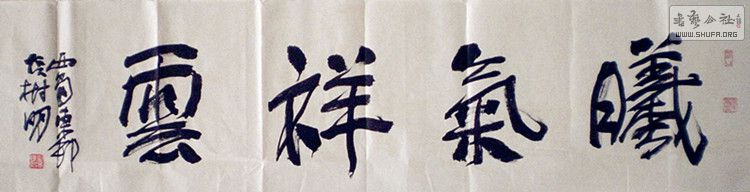 曦氣祥雲
西蜀
樹明
書藝公社
WWW.SHUFA.ORG